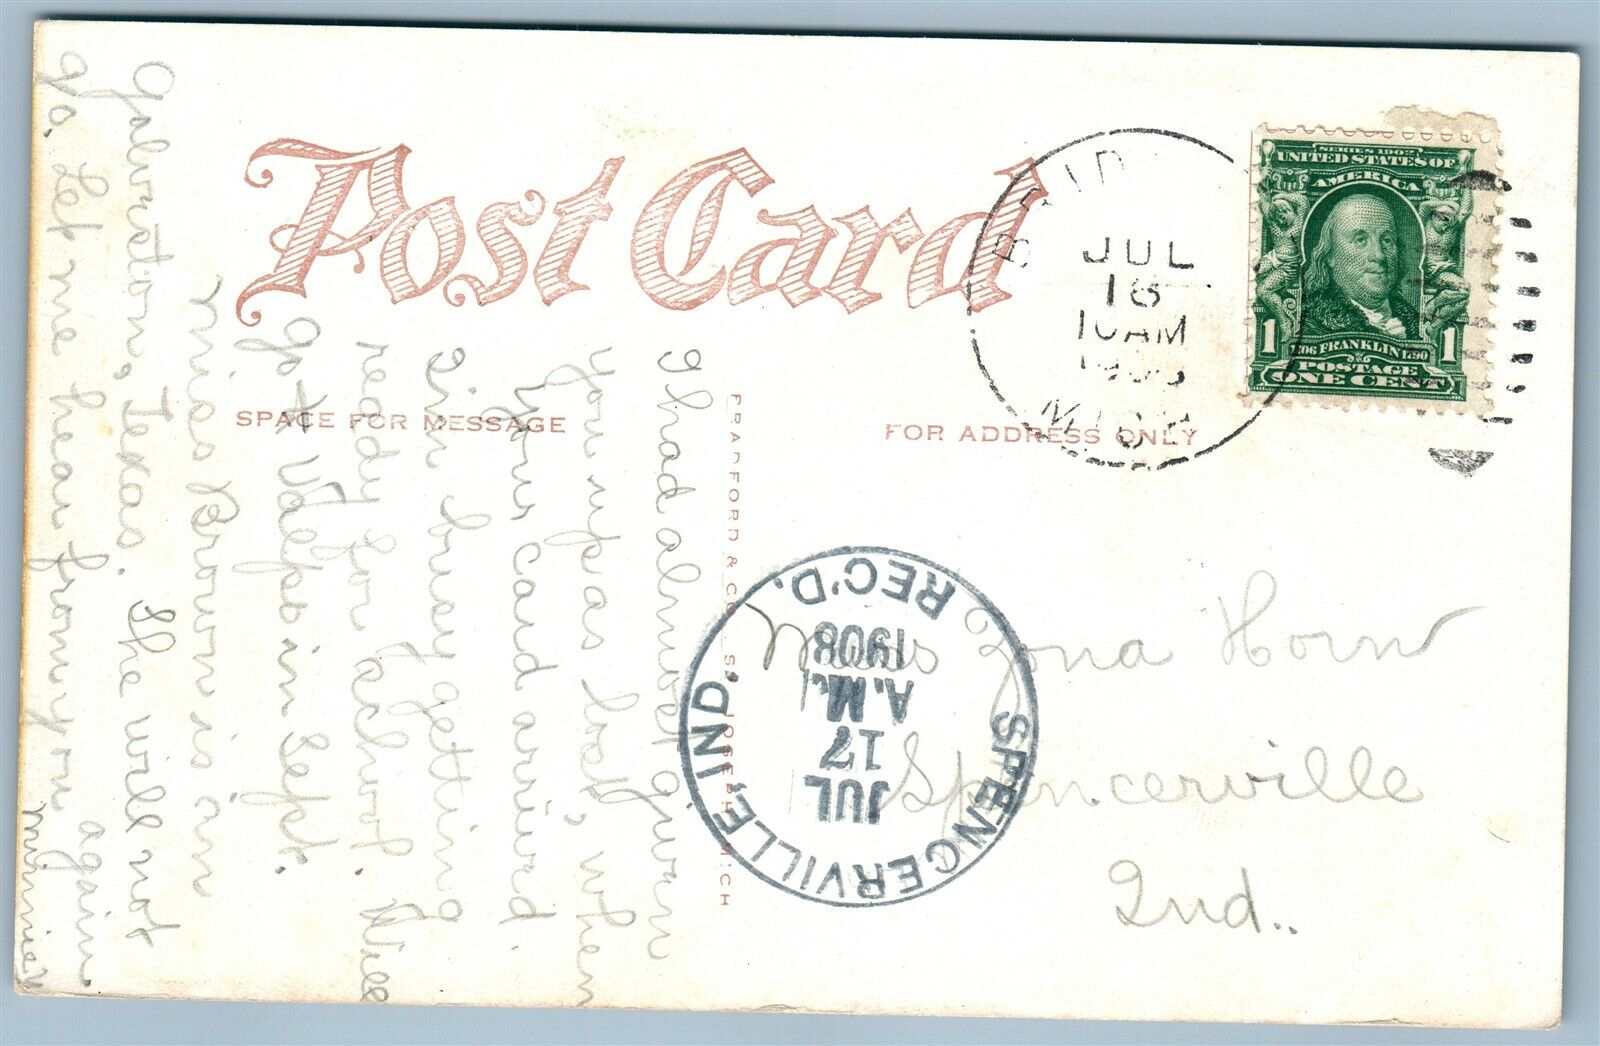 Post Card
SPACE FOR MESSAGE
FOR ADDRESS ONLY
JUL
16
10AM
MICH
SERIES 1902
UNITED STATES OF
AMERICA
1 1
1706 FRANKLIN 1790
POSTAGE
ONE CENT
SPENCERVILLE, IND.
JUL
17
A.M.
1908
REC'D.
Miss Zona Horn
Spencerville
Ind..
I had almost given
you up as lost, when
your card arrived.
I'm busy getting
ready for school. Will
go to Valpo in Sept.
Miss Brown is in
Galvestorn, Texas. She will not
go. Let me hear from you
again
Minnie